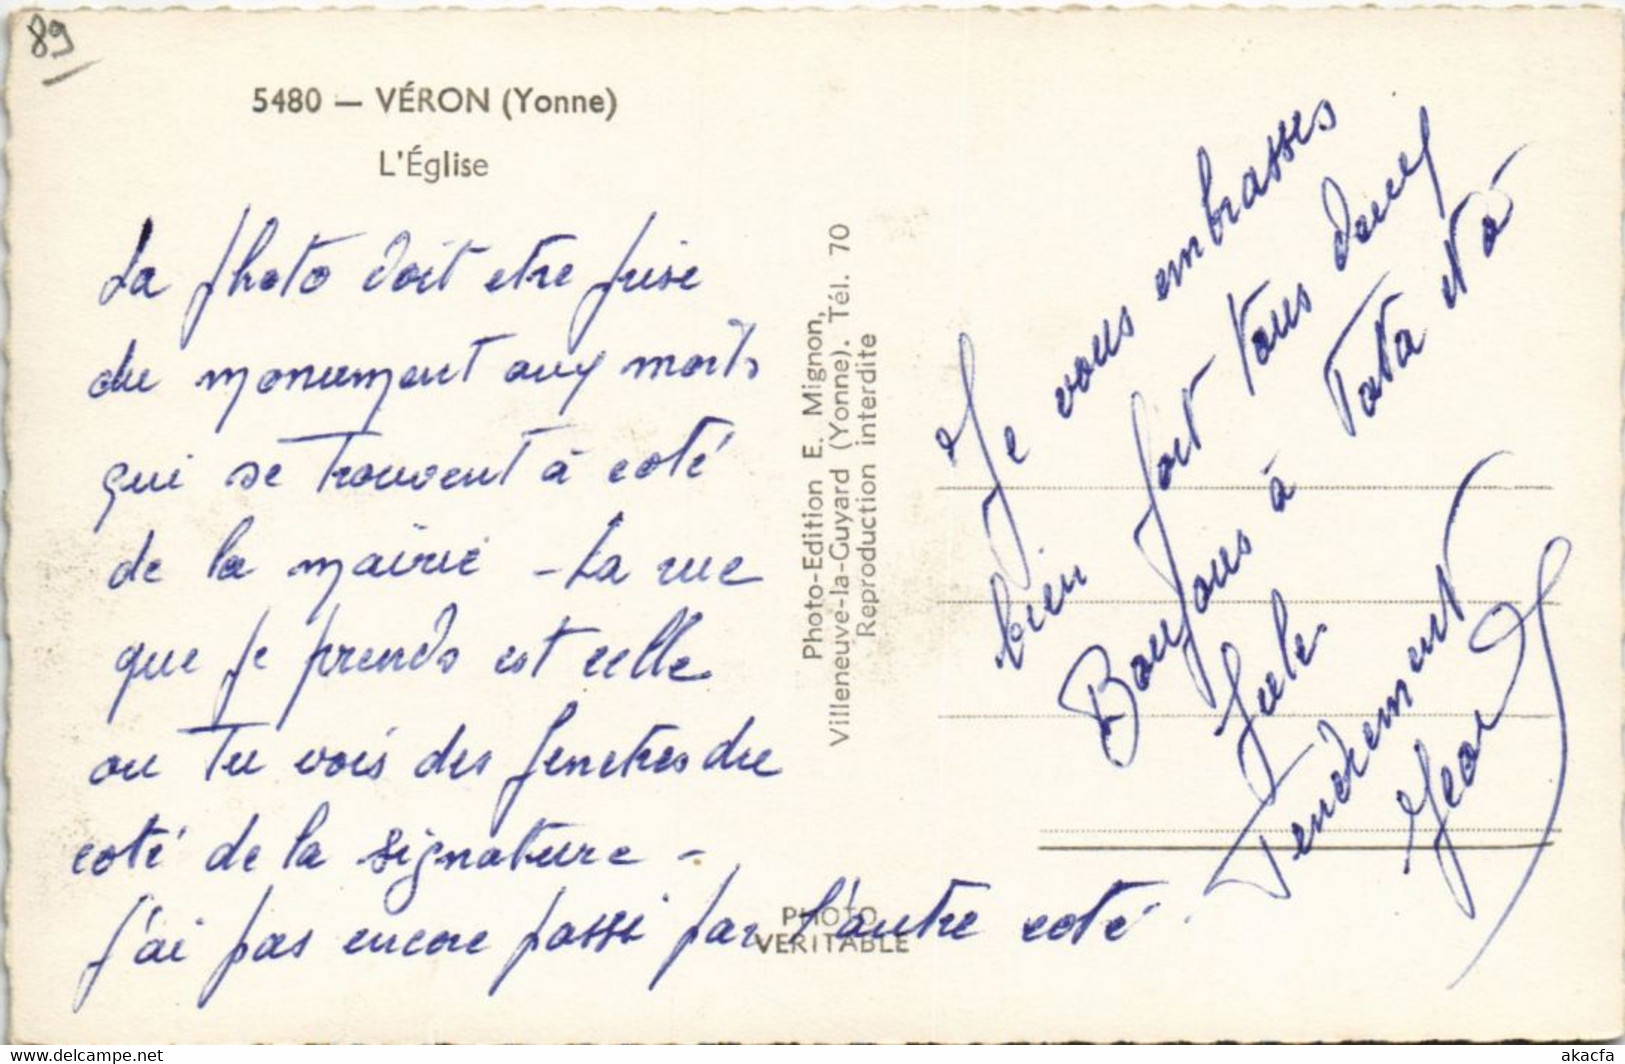 89
5480 — VÉRON (Yonne)
L'Église
La photo doit etre prise
du monument aux morts
qui se trouvent à coté
de la mairie - La rue
que je prends est celle
ou tu vois des fenetres du
coté de la signature -
j'ai pas encore passé par l'autre coté.
Photo-Edition E. Mignon,
Villeneuve-la-Guyard (Yonne). Tél. 70
Reproduction interdite
PHOTO
VERITABLE
Je vous embrasses
bien fort tous deux
Bonjours à Tata et à
Tendrement
Jean
www.delcampe.net
akacfa